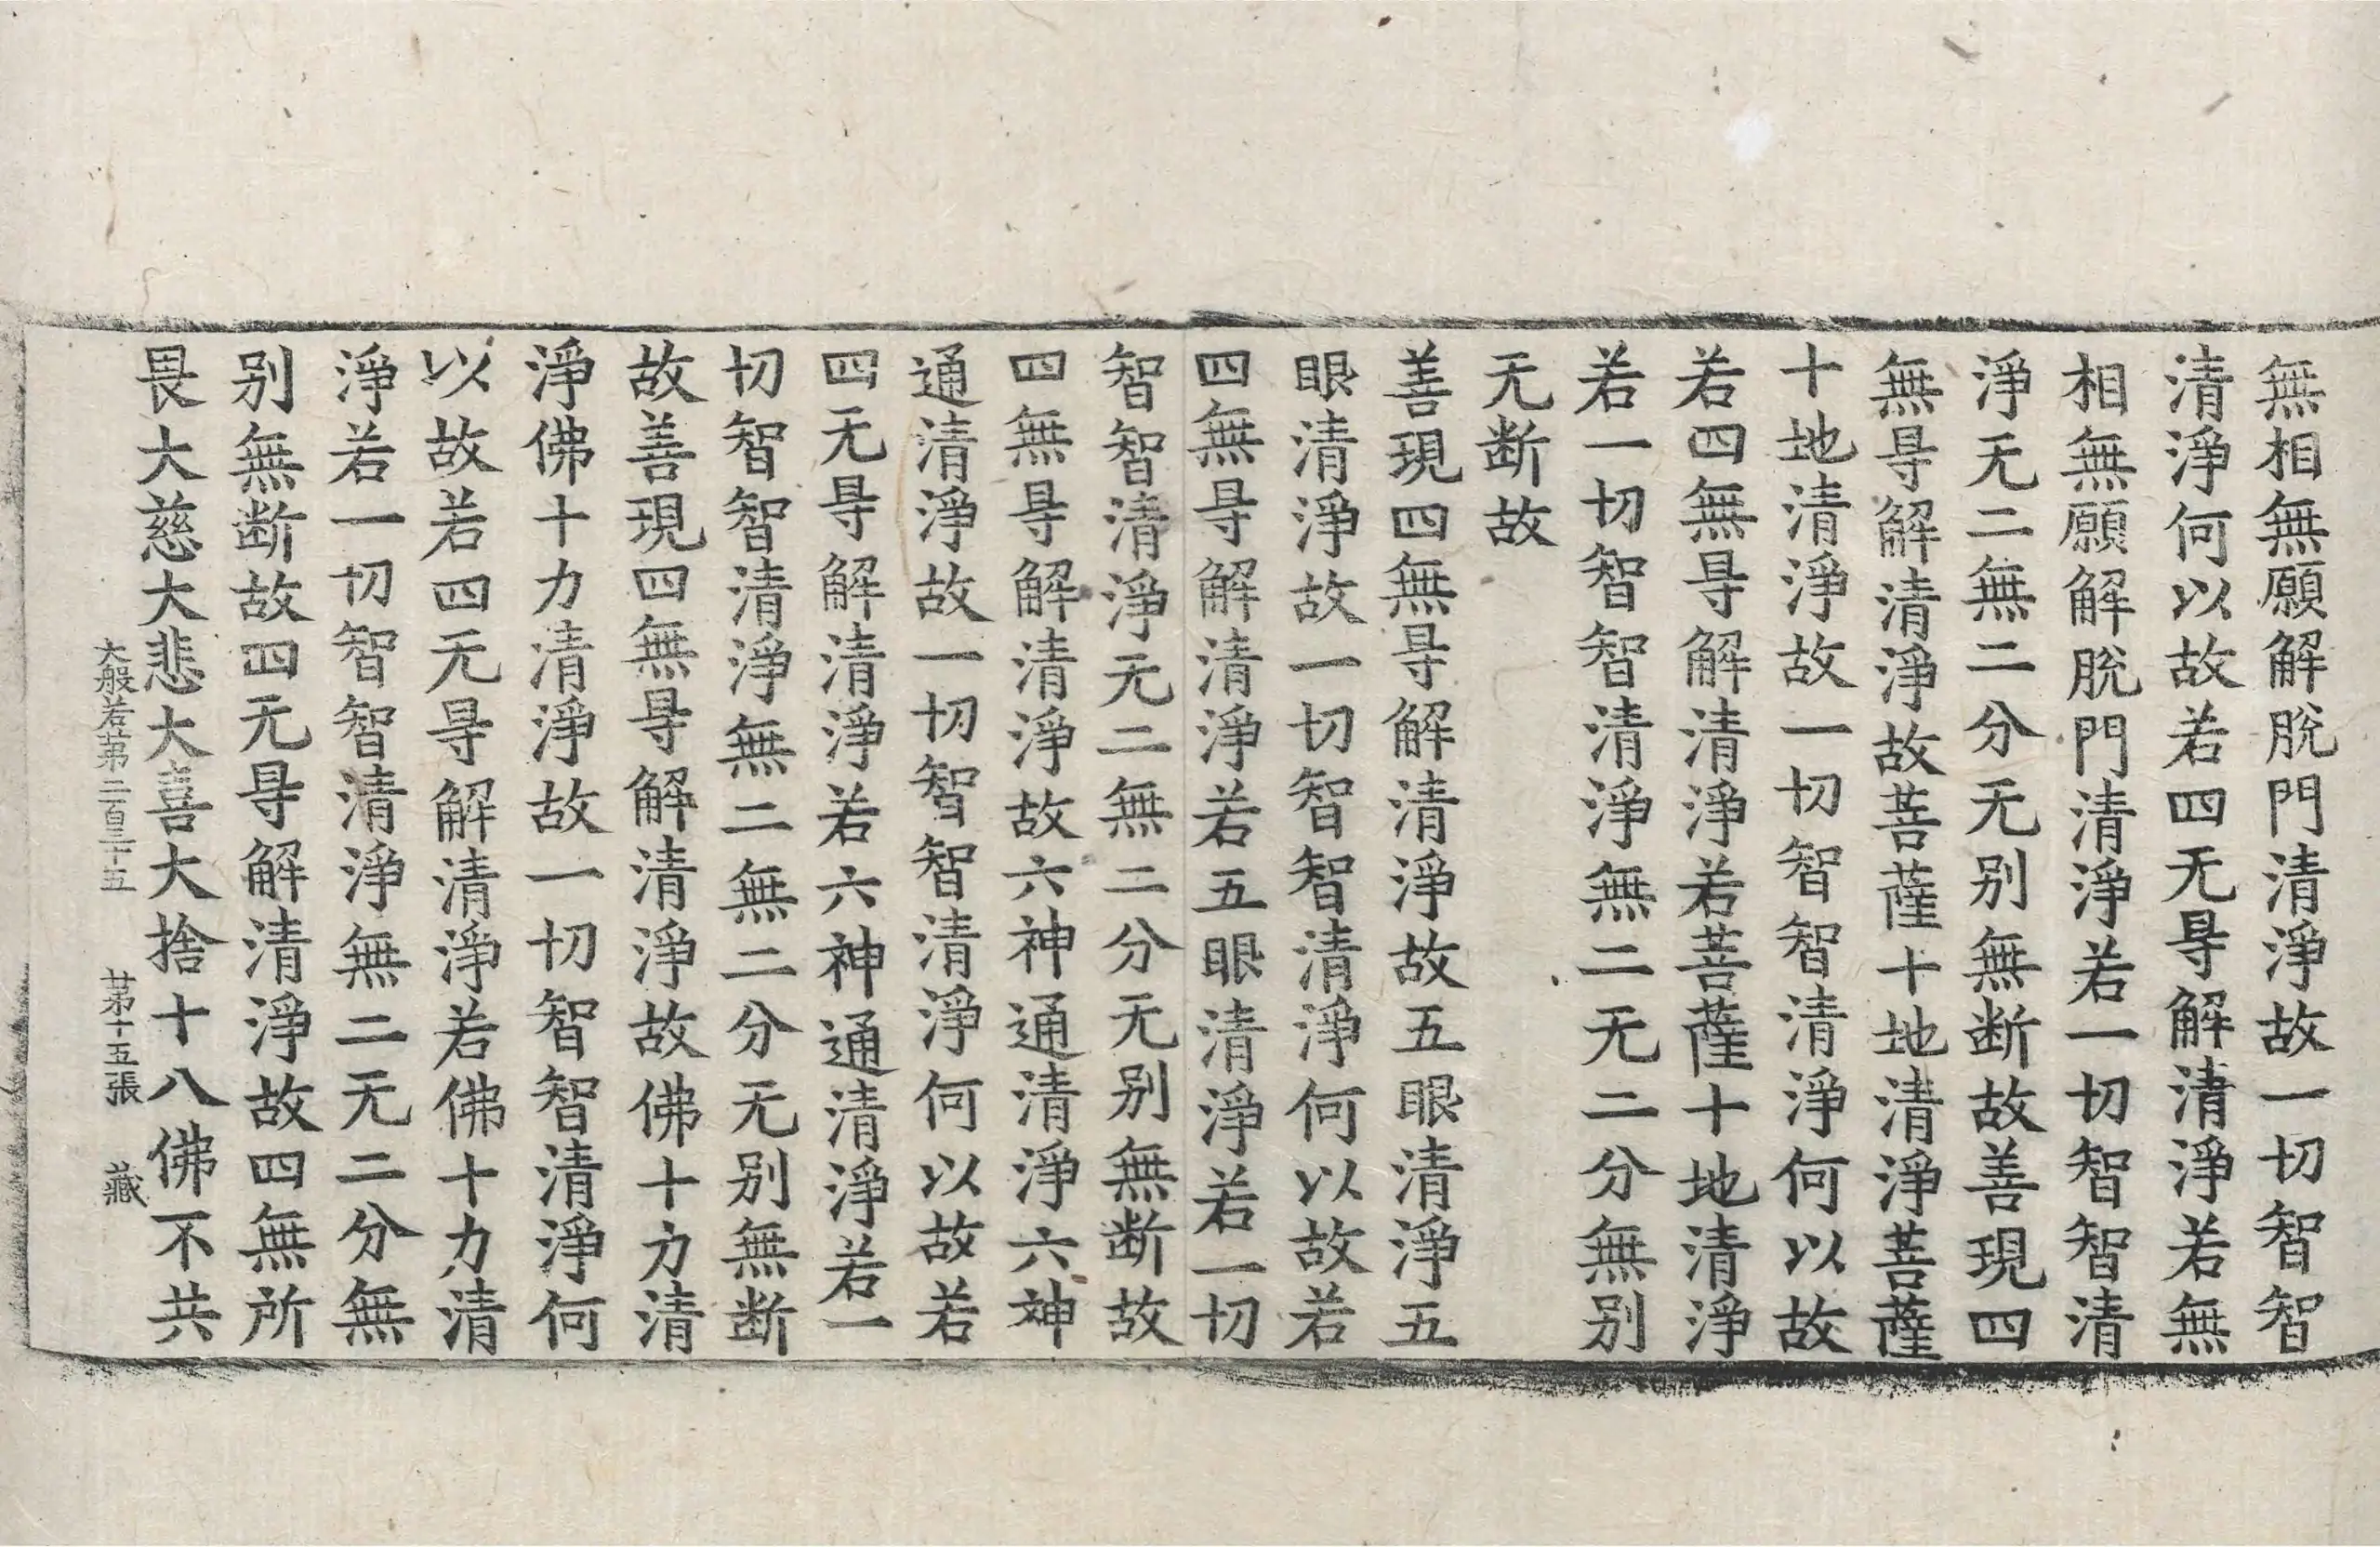 無相無願解脫門清淨故一切智智
清淨何以故若四无㝵解清淨若無
相無願解脫門清淨若一切智智清
淨无二無二分无别無断故善現四
無㝵解清淨故菩薩十地清淨菩薩
十地清淨故一切智智清淨何以故
若四無㝵解清淨若菩薩十地清淨
若一切智智清淨無二无二分無别
无断故
善現四無㝵解清淨故五眼清淨五
眼清淨故一切智智清淨何以故若
四無㝵解清淨若五眼清淨若一切
智智清淨无二無二分无别無断故
四無㝵解清淨故六神通清淨六神
通清淨故一切智智清淨何以故若
四无㝵解清淨若六神通清淨若一
切智智清淨無二無二分无别無断
故善現四無㝵解清淨故佛十力清
淨佛十力清淨故一切智智清淨何
以故若四无㝵解清淨若佛十力清
淨若一切智智清淨無二无二分無
别無断故四无㝵解清淨故四無所
畏大慈大悲大喜大捨十八佛不共
大般若苐二百三十五 苐十五張 藏